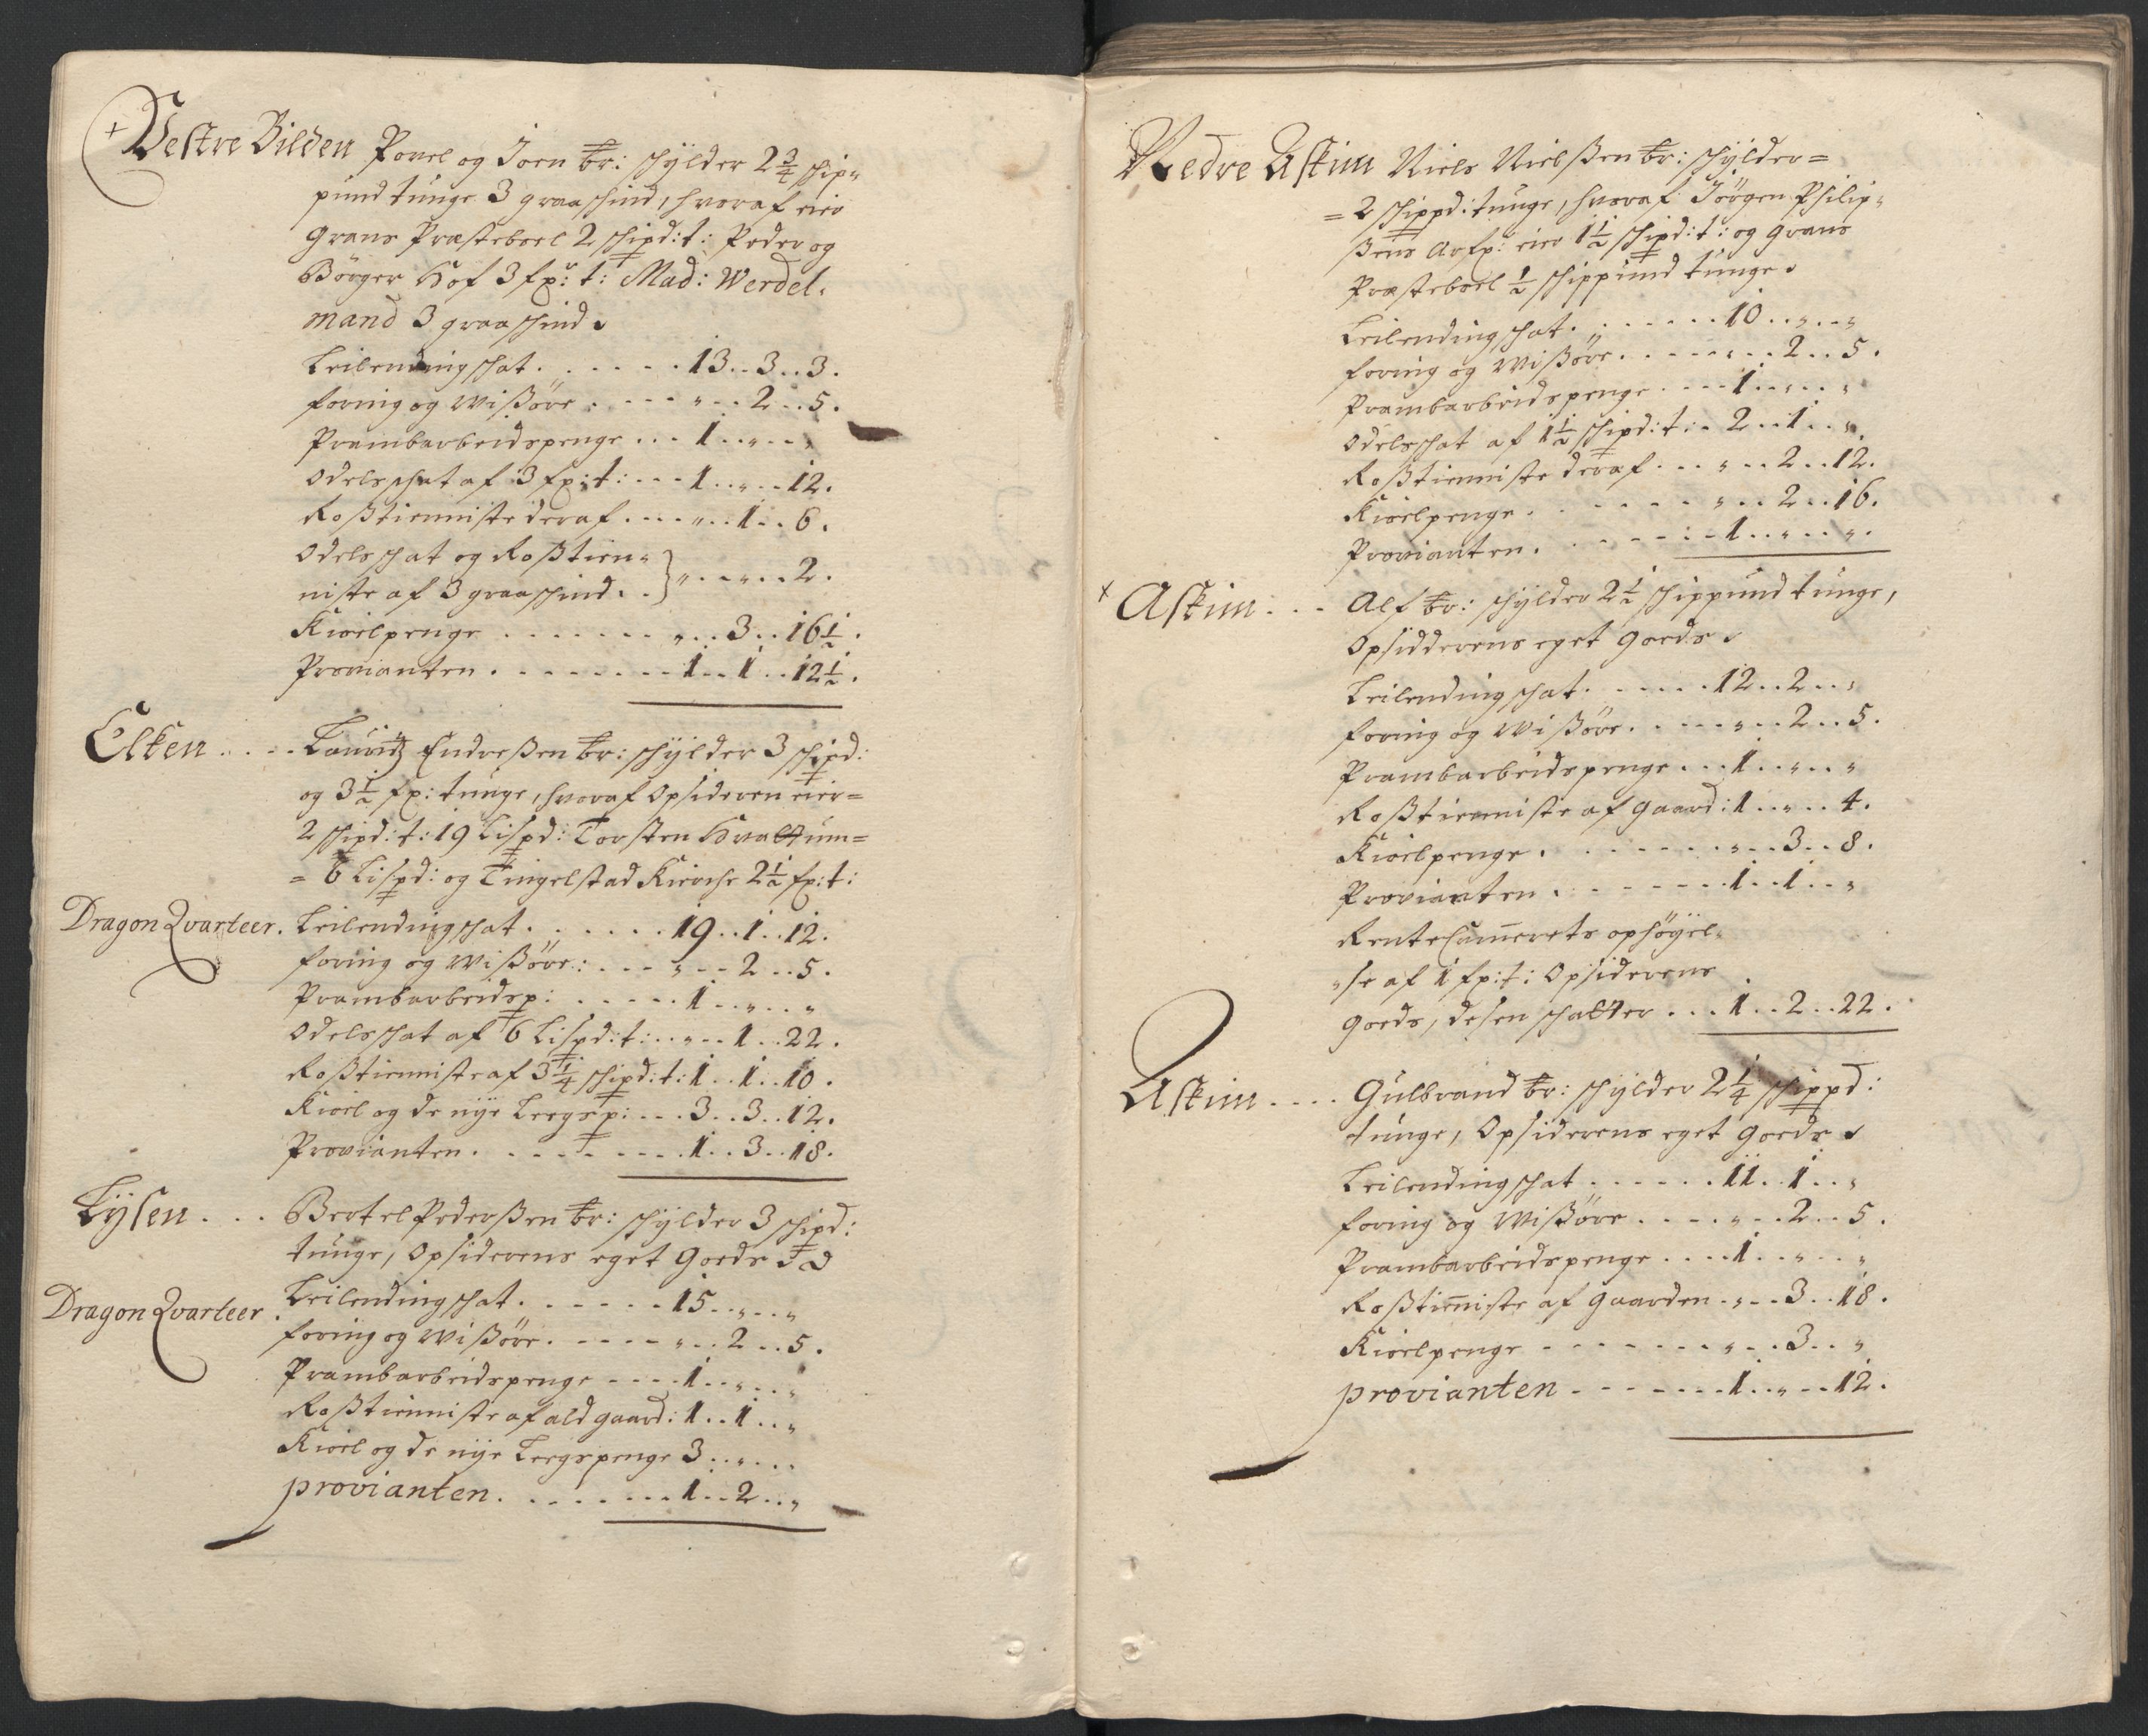 + Vestre Bilden Povel og Joen br: schÿlder 2 3/4 schip„
pund tunge 3 graaschind, hvoraf eier
Grans Præsteboel 2 schipd: t: Peder og
Börger Hof 3 fp: t: Mad: Werdel„
mand 3 graaschind
Leilendingschat . . . . . . 13 . . 3 . . 3 .
foring og Wisßöre . . . . „ . . 2 . . 5 .
Prambarbeidspenge . . . 1 . . „ . . „
Odelsschat af 3 fp: t: . . . 1 . . „ . . 12 .
Roßtienniste deraf . . . . „ . . 1 . . 6 .
Odelsschat og Roßtien„
niste af 3 graaschind . . } „ . . „ . . 2 .
Kioelpenge . . . . . . . „ . . 3 . . 16 1/2 .
Provianten . . . . . . . . 1 . . 1 . . 12 1/2 .
Elken . . . . Lauritz Endreßen br: schÿlder 3 schipd:
og 3 1/2 fp: tunge, hvoraf Opsideren eier =
2 schipd: t: 19 Lispd: Torsten Hvattum =
= 6 Lispd: og Tingelstad Kierche 2 1/2 fp: t:
Dragon Qvarteer . Leilendingschat . . . . . . 19 . . 1 . . 12 .
foring og Wisßöre : . . . „ . . 2 . . 5 .
Prambarbeidsp: . . . . . 1 . . „ . . „
Odelsschat af 6 Lispd: t: . . „ . . 1 . . 22 .
Roßtienniste af 3 1/4 schipd: t: 1 . . 1 . . 10 .
Kioel og de nÿe Leegsp: . . . 3 . . 3 . . 12 .
Provianten . . . . . . . . 1 . . 3 . . 18 .
Lÿsen . . . Bertel Pederßen br: schÿlder 3 schipd:
tunge, Opsiderens eget Goeds
Dragon Qvarteer . Leilendingschat . . . . . . 15 . . „ . . „
foring og Wisßöre . . . . . „ . . 2 . . 5 .
Prambarbeidspenge . . . . 1 . . „ . . „
Roßtienniste af ald gaard: 1 . . 1 . . „
Kioel og de nÿe Leegspenge 3 . . „ . . .
provianten . . . . . . . . 1 . . 2 . . „
Nedre Askim Niels Nielßen br: schÿlder =
= 2 schippd: tunge, hvoraf Jörgen Philip„
ßens Arfv: eier 1 1/2 schipd: t: og Grans
Præsteboel 1/2 schippund tunge
Leilendingschat . . . . . . . 10 . . „ . . „
foring og Wisßöre . . . . . „ . . 2 . . 5 .
Prambarbeidspenge . . . . 1 . . „ . . „
Odelsschat af 1 1/2 schipd: t: . 2 . . 1 . . „
Roßtienniste deraf . . . „ . . 2 . . 12 .
Kioelpenge . . . . . . . „ . . 2 . . 16 .
Provianten . . . . . . . . 1 . . „ . . „ .
+ Askim . . . Alf br: schÿlder 2 1/2 schippund tunge,
Opsidderens eget Goeds
Leilendingschat . . . . . . 12 . . 2 . . „
foring og Wisßöre . . . . . „ . . 2 . . 5 .
Prambarbeidspenge . . . 1 . . „ . . „
Roßtienniste af Gaard: 1 . . „ . . 4 .
Kioelpenge . . . . . . . . „ . . 3 . . 8 .
Provianten . . . . . . . . 1 . . 1 . . „
Rentecamerets ophöÿel„
„se af 1 fp: t: Opsiderens
Goeds, desen schatter . . . 1 . . 2 . . 22 .
Askim . . . . Gulbrand br: schÿlder 2 1/4 schippd:
tunge, Opsiderens eget Goeds
Leilendingschat . . . . . . 11 . . 1 . . „
foring og Wisßöre . . . . „ . . 2 . . 5 .
Prambarbeidspenge . . . . 1 . . „ . . „
Roßtieniste af Gaarden . „ . . 3 . . 18 .
Kioelpenge . . . . . . . . „ . . 3 . . „
provianten . . . . . . . 1 . . „ . . 12 .